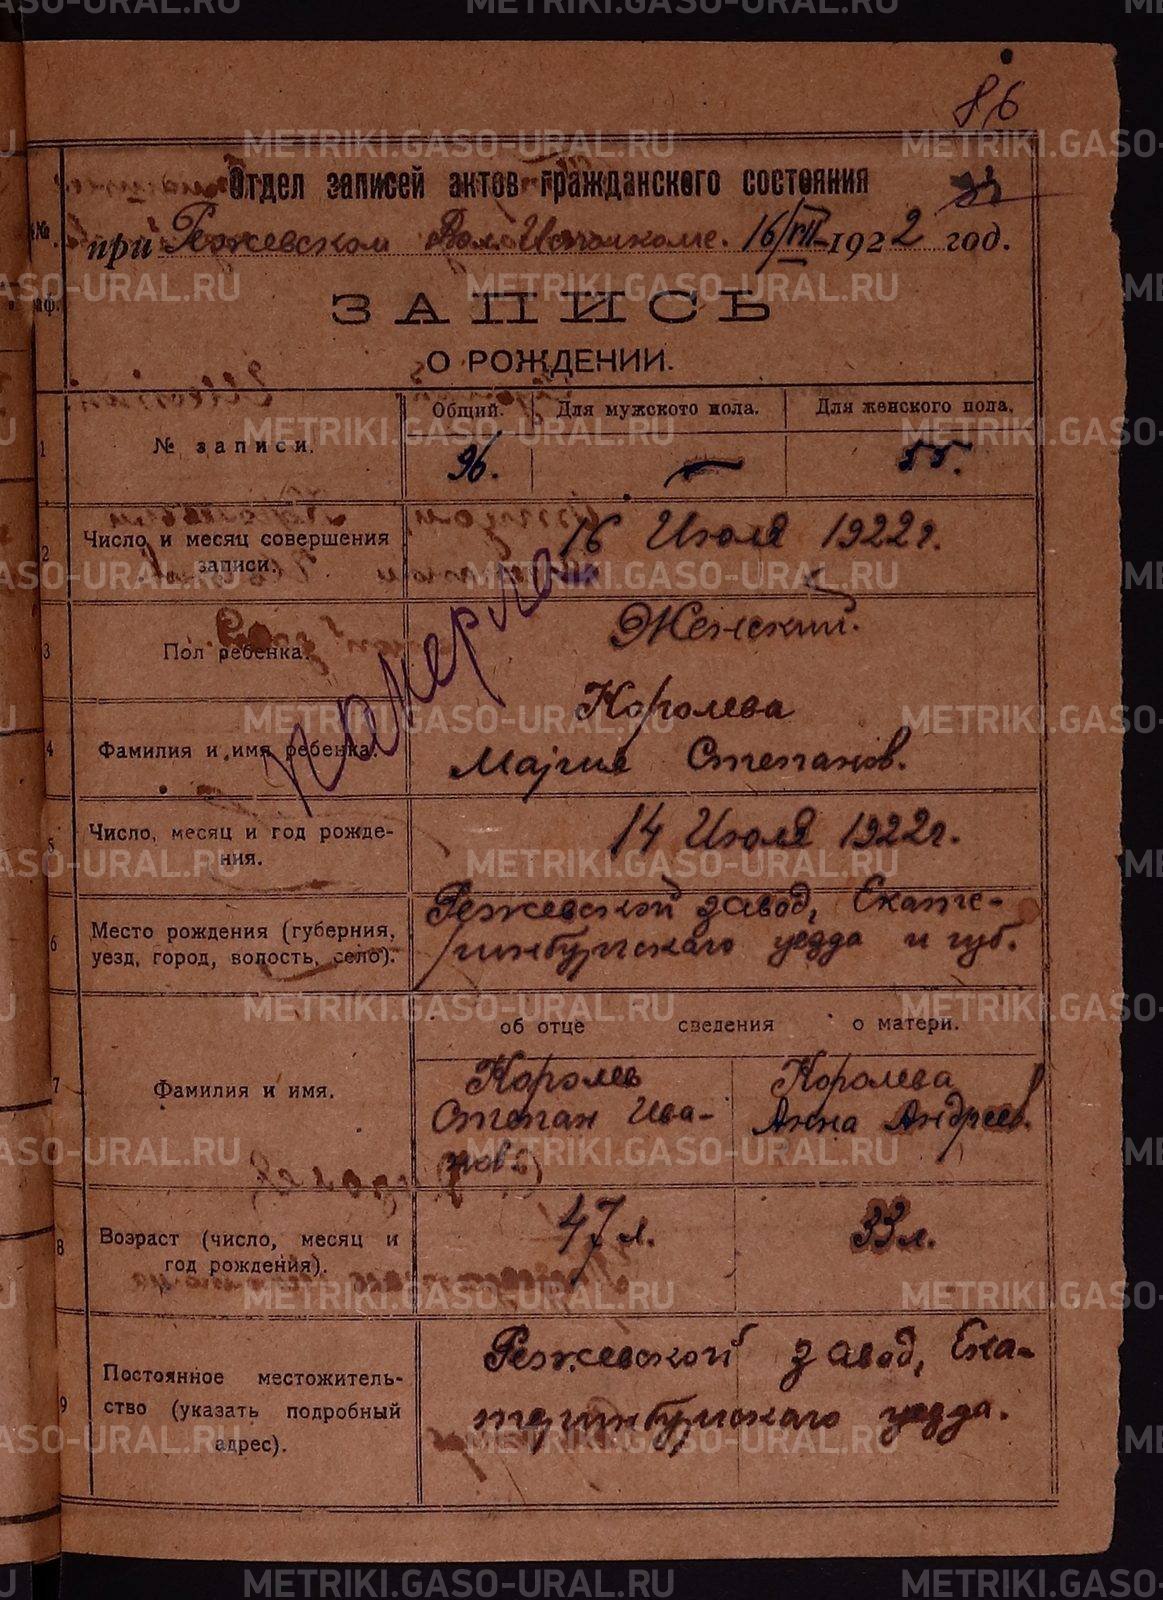 86
Отдел записей актов гражданского состояния
33
при Режевском Вол. Исполкоме. 16/VII-1922 год.
ЗАПИСЬ
О РОЖДЕНИИ.
1
№ записи.
Общий. Для мужского пола. Для женского пола.
96. — 55.
2
Число и месяц совершения
записи.
16 Июля 1922 г.
3
Пол ребенка.
Женский.
4
Фамилия и имя ребенка.
Королева
Мария Степанов.
5
Число, месяц и год рожде-
ния.
14 Июля 1922 г.
6
Место рождения (губерния,
уезд, город, волость, село).
Режевской завод, Екате-
ринбургского уезда и губ.
об отце сведения о матери.
7
Фамилия и имя.
Королев
Степан Ива-
нов.
Королева
Анна Андреев.
8
Возраст (число, месяц и
год рождения).
47 л. 33 л.
9
Постоянное местожитель-
ство (указать подробный
адрес).
Режевской завод, Ека-
теринбургского уезда.
METRIKI.GASO-URAL.RU